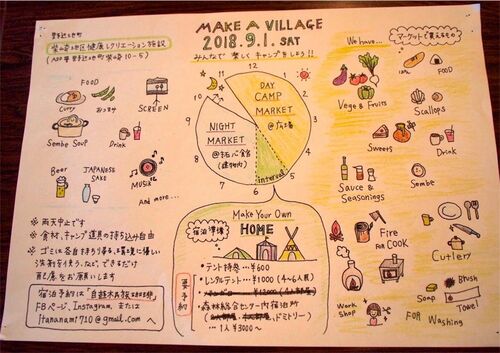 MAKE A VILLAGE
2018.9.1. SAT
みんなで楽しくキャンプをしよう!!
野辺地町
地区健康レクリエーション施設
10-5)
FOOD
Curry
おつまみ
SCREEN
Sembe Soup
Drink
Beer
JAPANESE
SAKE
MUSIK
And more...
※ 雨天中止です
※ 食材、キャンプ道具の持ち込み自由
※ ゴミは各自持ち帰る、環境に優しい
洗剤を使う、など、できるだけ
配慮をお願いします
宿泊予約は
FBページ、Instagram または
Itananami1710@gmail.com へ
11
12
1
2
3
4
5
6
7
8
9
10
DAY
CAMP
MARKET
@広場
NIGHT
MARKET
(建物内)
interval
Make Your Own
宿泊準備
HOME
要予約
・テント持参 … ¥600
・レンタルテント … ¥1000 (4~6人用)
・森林総合センター内宿泊所
… 1人 ¥3000~
We have...
マーケットで買えるもの
FOOD
Vege & Fruits
Scallops
Sweets
Drink
Sauce &
Seasonings
Sembe
Fire
For COOK
Cutlery
Work
Shop
Soap
Brush
Towel
FOR Washing